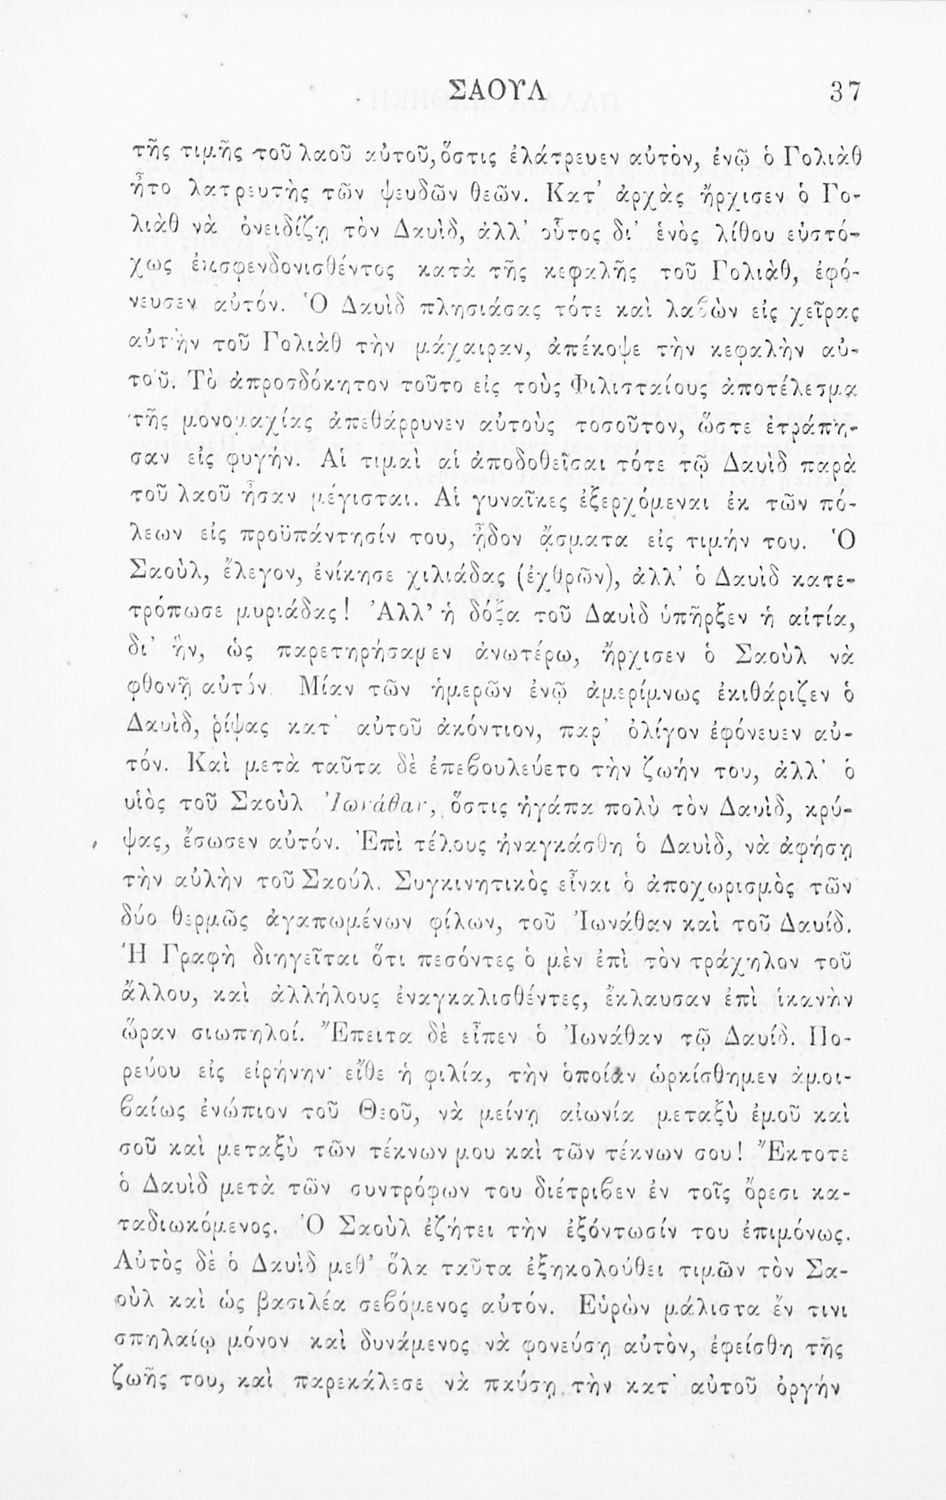 ΣΑΟΥΛ 37
τῆς τιμῆς τοῦ λαοῦ αὐτοῦ, ὅστις ἐλάτρευεν αὐτὸν, ἐνῷ ὁ Γολιὰθ
ἦτο λατρευτὴς τῶν ψευδῶν θεῶν. Κατ' ἀρχὰς ἤρχισεν ὁ Γο-
λιὰθ νὰ ὀνειδίζῃ τὸν Δαυὶδ, ἀλλ' οὗτος δι' ἑνὸς λίθου εὐστό-
χως ἐκσφενδονισθέντος κατὰ τῆς κεφαλῆς τοῦ Γολιὰθ, ἐφό-
νευσεν αὐτόν. Ὁ Δαυὶδ πλησιάσας τότε καὶ λαβὼν εἰς χεῖρας
αὐτὴν τοῦ Γολιὰθ τὴν μάχαιραν, ἀπέκοψε τὴν κεφαλὴν αὐ-
τοῦ. Τὸ ἀπροσδόκητον τοῦτο εἰς τοὺς Φιλισταίους ἀποτέλεσμα
τῆς μονομαχίας ἀπεθάρρυνεν αὐτοὺς τοσοῦτον, ὥστε ἐτράπη-
σαν εἰς φυγήν. Αἱ τιμαὶ αἱ ἀποδοθεῖσαι τότε τῷ Δαυὶδ παρὰ
τοῦ λαοῦ ἦσαν μέγισται. Αἱ γυναῖκες ἐξερχόμεναι ἐκ τῶν πό-
λεων εἰς προϋπάντησίν του, ᾖδον ᾄσματα εἰς τιμήν του. Ὁ
Σαοὺλ, ἔλεγον, ἐνίκησε χιλιάδας (ἐχθρῶν), ἀλλ' ὁ Δαυὶδ κατε-
τρόπωσε μυριάδας! Ἀλλ' ἡ δόξα τοῦ Δαυὶδ ὑπῆρξεν ἡ αἰτία,
δι' ἣν, ὡς παρετηρήσαμεν ἀνωτέρω, ἤρχισεν ὁ Σαοὺλ νὰ
φθονῇ αὐτόν. Μίαν τῶν ἡμερῶν ἐνῷ ἀμερίμνως ἐκιθάριζεν ὁ
Δαυὶδ, ῥίψας κατ' αὐτοῦ ἀκόντιον, παρ' ὀλίγον ἐφόνευεν αὐ-
τόν. Καὶ μετὰ ταῦτα δὲ ἐπεβουλεύετο τὴν ζωήν του, ἀλλ' ὁ
υἱὸς τοῦ Σαοὺλ Ἰωνάθαν, ὅστις ἠγάπα πολὺ τὸν Δαυὶδ, κρύ-
ψας, ἔσωσεν αὐτόν. Ἐπὶ τέλους ἠναγκάσθη ὁ Δαυὶδ, νὰ ἀφήσῃ
τὴν αὐλὴν τοῦ Σαούλ. Συγκινητικὸς εἶναι ὁ ἀποχωρισμὸς τῶν
δύο θερμῶς ἀγαπωμένων φίλων, τοῦ Ἰωνάθαν καὶ τοῦ Δαυίδ.
Ἡ Γραφὴ διηγεῖται ὅτι πεσόντες ὁ μὲν ἐπὶ τὸν τράχηλον τοῦ
ἄλλου, καὶ ἀλλήλους ἐναγκαλισθέντες, ἔκλαυσαν ἐπὶ ἱκανὴν
ὥραν σιωπηλοί. Ἔπειτα δὲ εἶπεν ὁ Ἰωνάθαν τῷ Δαυίδ. Πο-
ρεύου εἰς εἰρήνην· εἴθε ἡ φιλία, τὴν ὁποίαν ὡρκίσθημεν ἀμοι-
βαίως ἐνώπιον τοῦ Θεοῦ, νὰ μείνῃ αἰωνία μεταξὺ ἐμοῦ καὶ
σοῦ καὶ μεταξὺ τῶν τέκνων μου καὶ τῶν τέκνων σου! Ἔκτοτε
ὁ Δαυὶδ μετὰ τῶν συντρόφων του διέτριβεν ἐν τοῖς ὄρεσι κα-
ταδιωκόμενος. Ὁ Σαοὺλ ἐζήτει τὴν ἐξόντωσίν του ἐπιμόνως.
Αὐτὸς δὲ ὁ Δαυὶδ μεθ' ὅλα ταῦτα ἐξηκολούθει τιμῶν τὸν Σα-
οὺλ καὶ ὡς βασιλέα σεβόμενος αὐτόν. Εὑρὼν μάλιστα ἔν τινι
σπηλαίῳ μόνον καὶ δυνάμενος νὰ φονεύσῃ αὐτὸν, ἐφείσθη τῆς
ζωῆς του, καὶ παρεκάλεσε νὰ παύσῃ τὴν κατ' αὐτοῦ ὀργήν